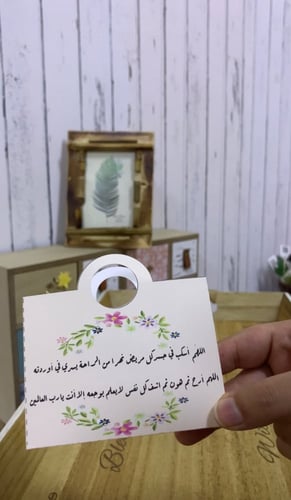 اللهم اسكب في جسد كل مريض نهرا من الراحة يسري في أوردته
اللهم أرح ثم هون ثم اشف كل نفس لا يعلم بوجعها إلا أنت يارب العالمين